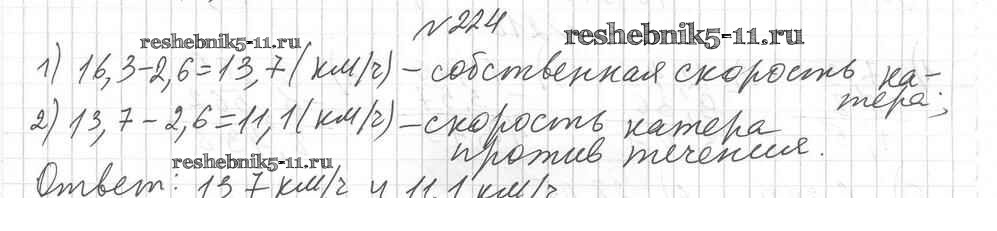 №224
reshebnik5-11.ru
reshebnik5-11.ru
1) 16,3-2,6=13,7(км/ч) – собственная скорость ка-
тера;
2) 13,7-2,6=11,1(км/ч) – скорость катера
против течения.
reshebnik5-11.ru
Ответ: 13,7 км/ч и 11,1 км/ч